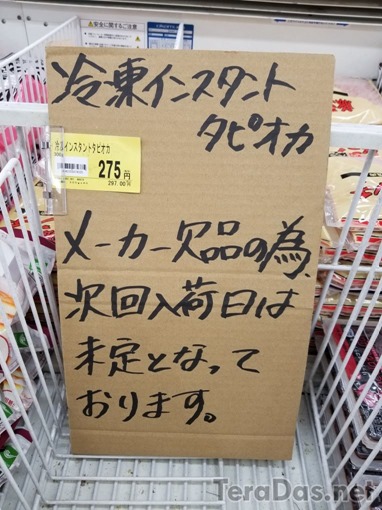 安全に関するご注意
冷凍インスタント
タピオカ
冷凍インスタントタピオカ
300g
275円
297.00
メーカー欠品の為
次回入荷日は
未定となって
おります。
TeraDas.net